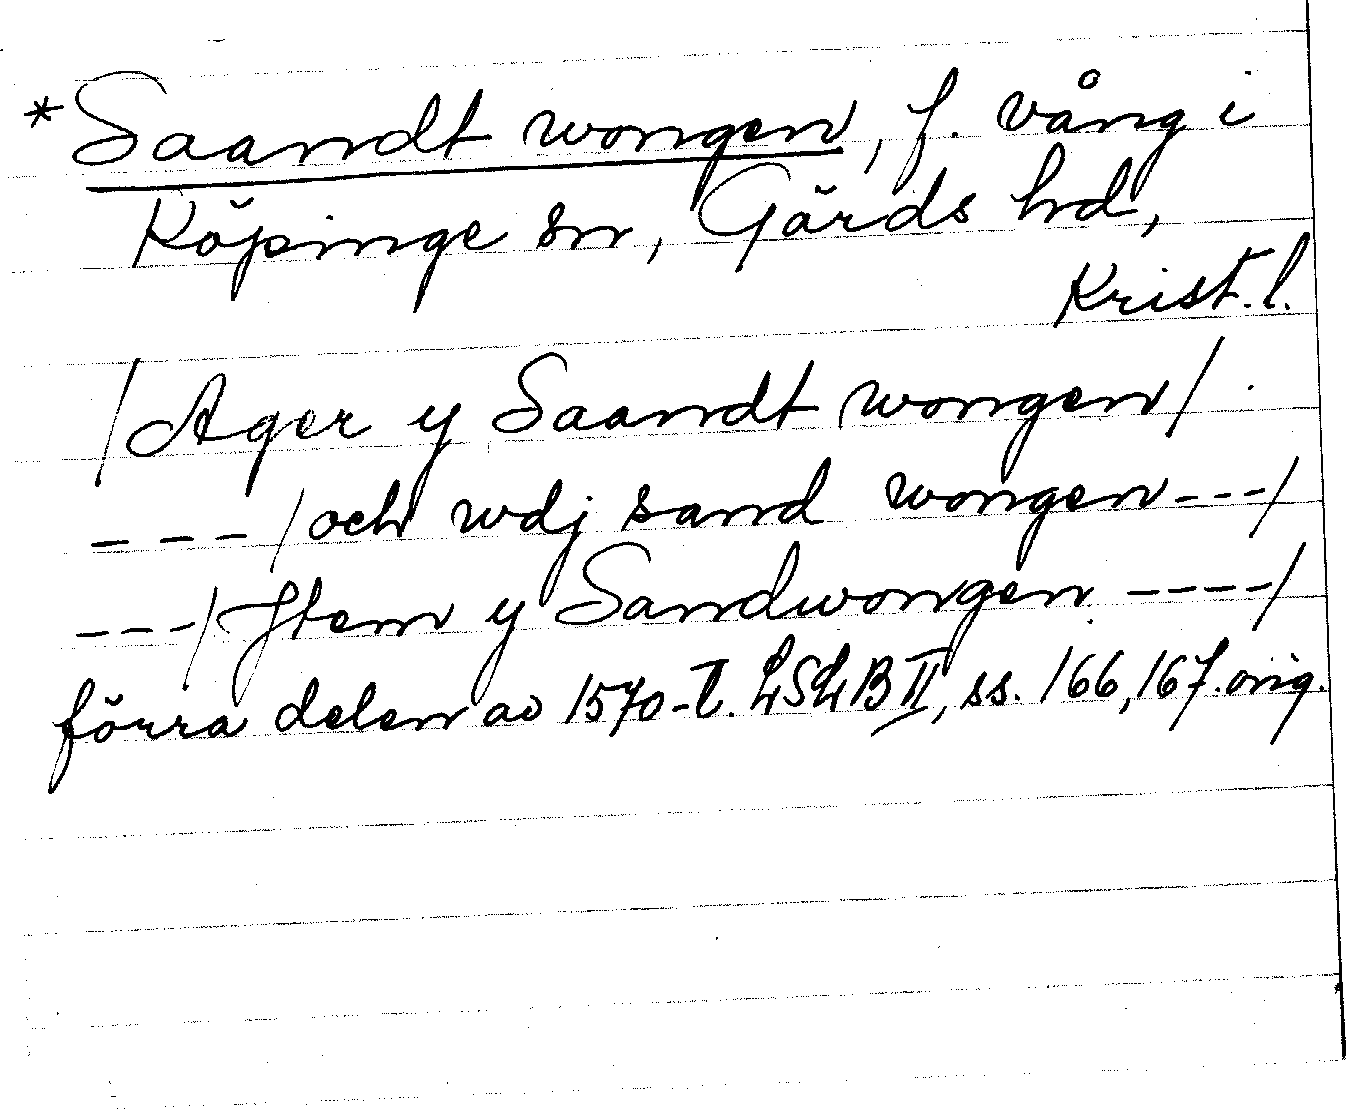 *Saandt wongen, f. vång i
Köpinge sn, Gärds hd,
Krist. l.
/Ager y Saandt wongen/
--- /och wdj sand wongen---/
---/Jtem y Sandwongen ----/
förra delen av 1570-t. LSLB II, ss. 166, 167. orig.